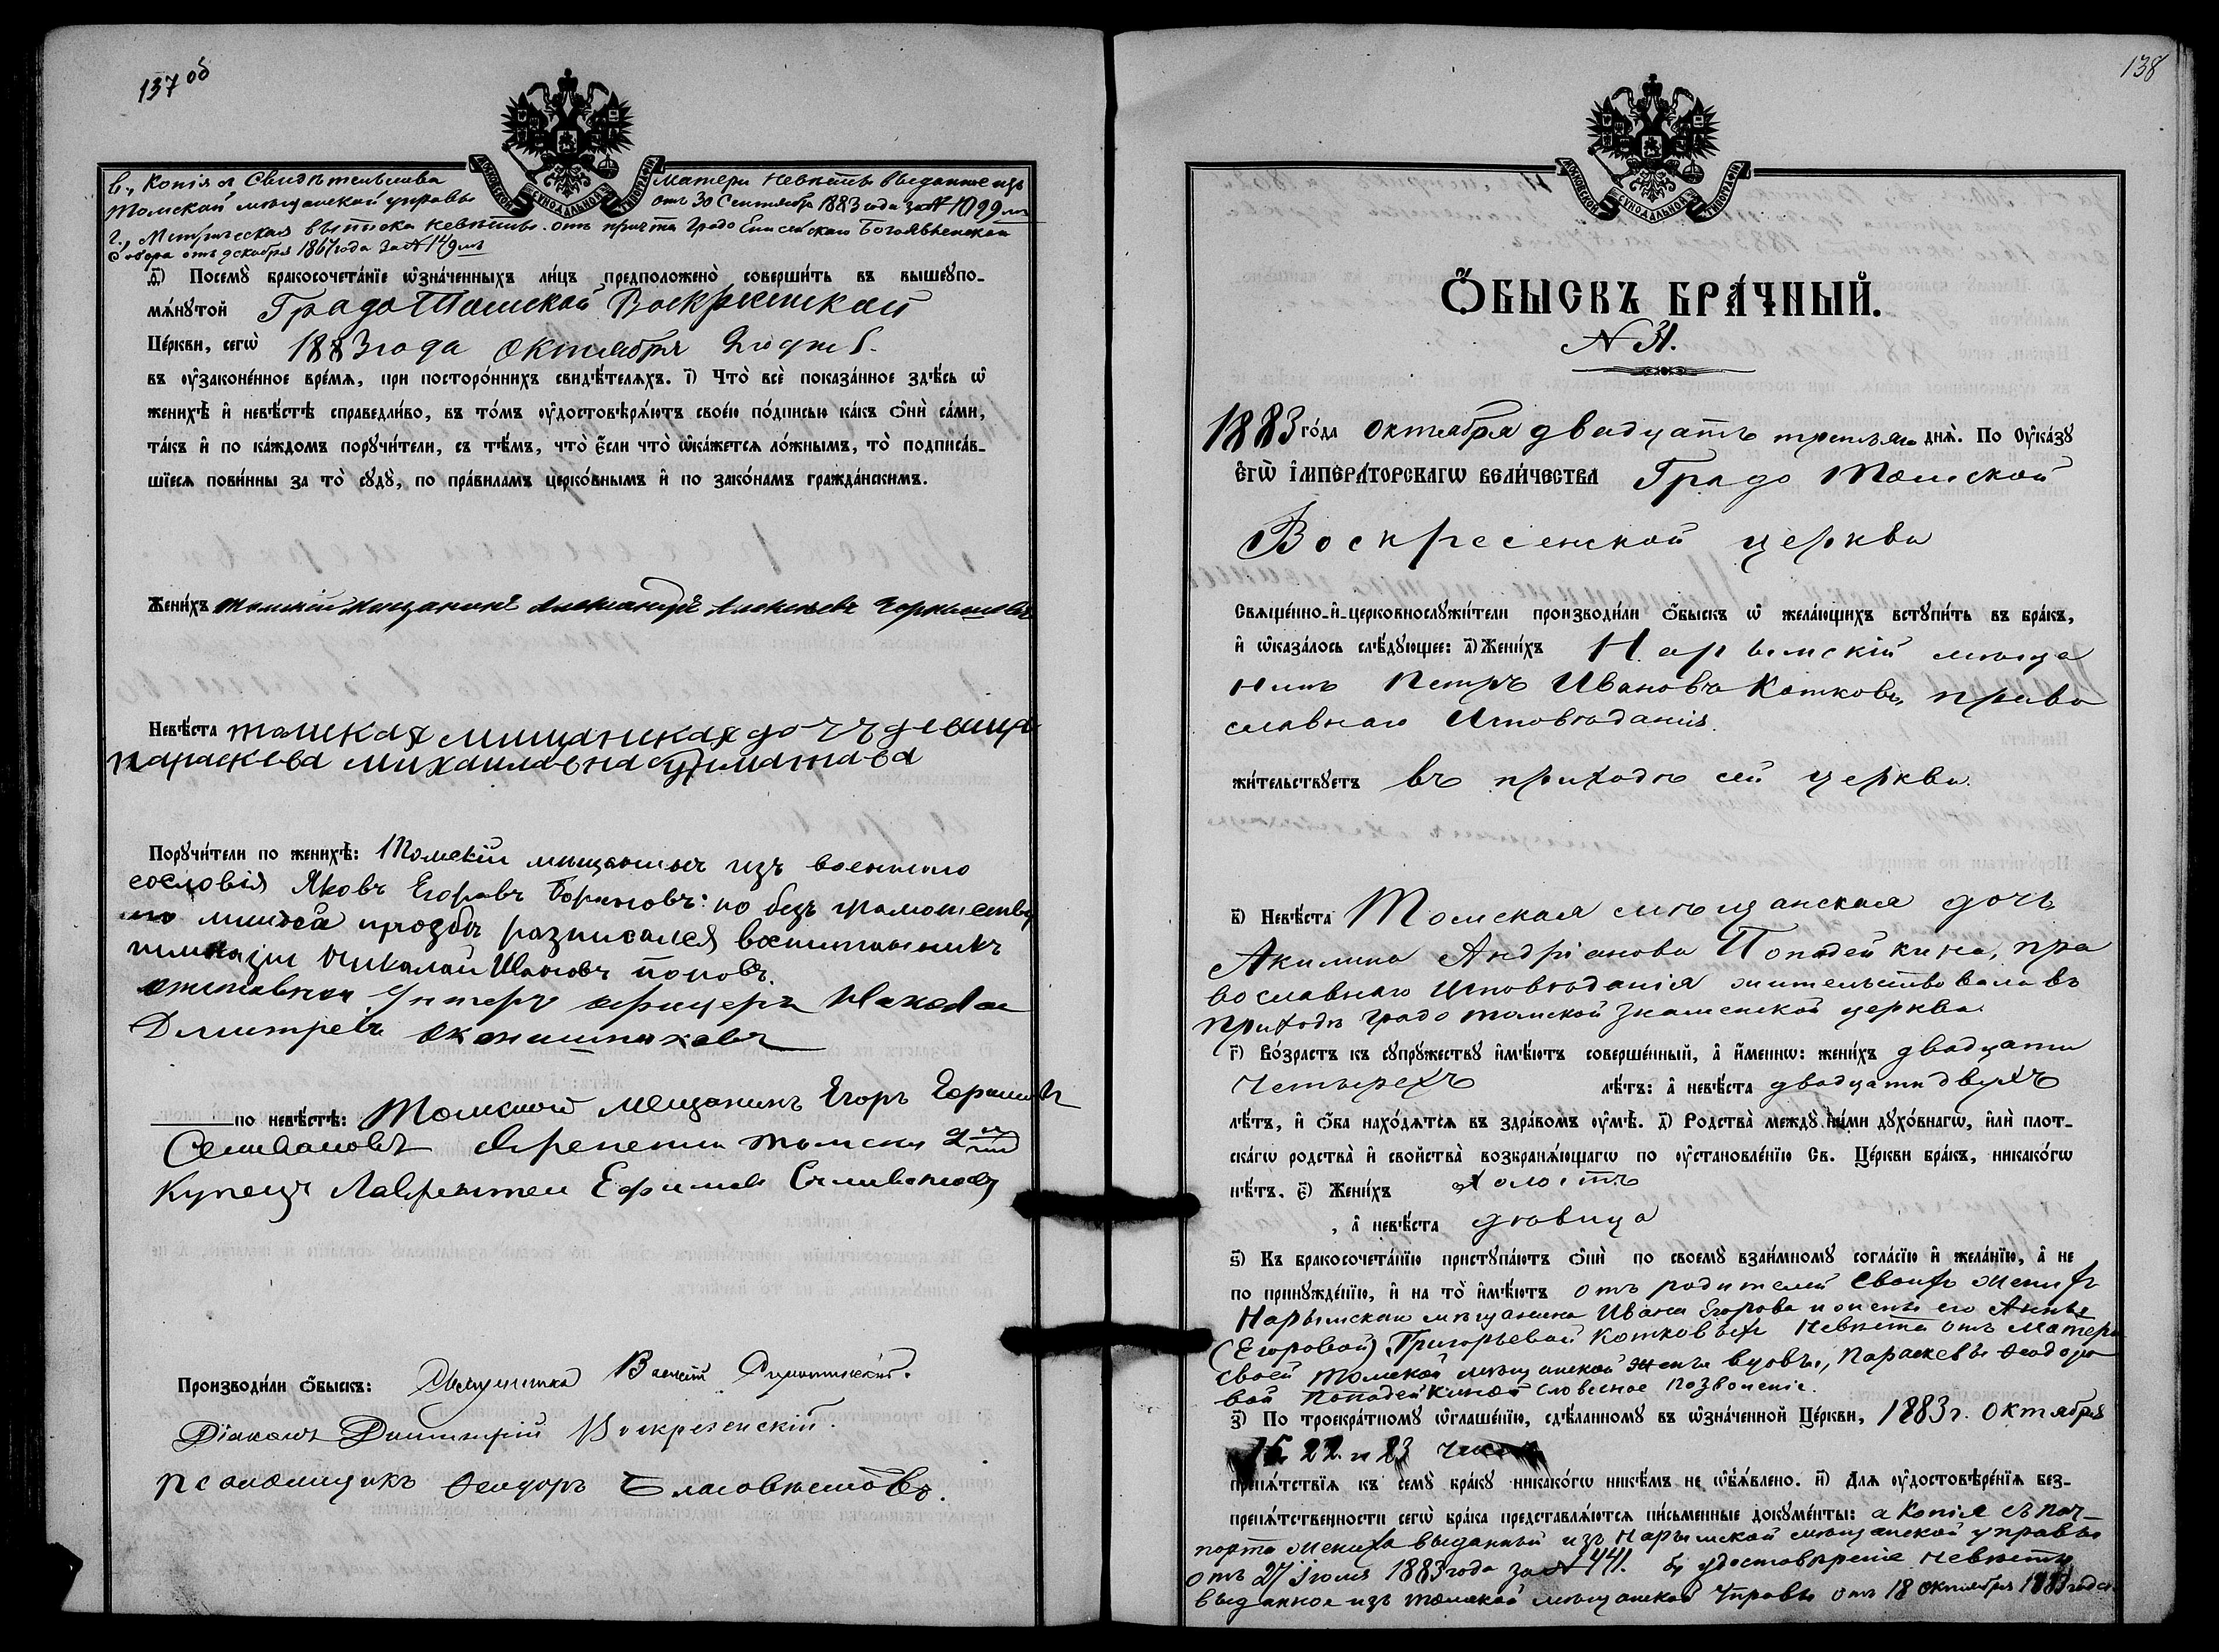 137 об
МОСКОВСКОЙ СѴНОДАЛЬНОЙ ТИПОГРАФІИ
в., Копія съ Свидѣтельства матери невѣсты выданное изъ
Томской мѣщанской управы отъ 30 Сентября 1883 года за № 1029 мъ
г., Метрическая выписка невѣсты отъ причта Градо Енисейскаго Богоявленскаго
Собора отъ декабря 1867 года за № 149 мъ
д҃) Посемꙋ̀ бракосочета́нїе ѡ҆зна́ченныхъ ли́цъ предположено̀ соверши́ть въ вышеꙋпо-
мѧ́нꙋтой Градо Томской Воскресенской
Це́ркви, сегѡ̀ 1883 года Октября дня
въ ᲂу҆законе́нное вре́мѧ, при посторо́ннихъ свидѣ́телѧхъ. і҃) Что̀ всѐ показа́нное здѣ́сь ѡ҆
женихѣ̀ и҆ невѣ́стѣ справедли́во, въ то́мъ ᲂу҆достовѣрѧ́ютъ свое́ю по́дписью ка́къ ѻ҆нѝ са́ми,
та́къ и҆ по ка́ждомъ порꙋчи́тели, съ тѣ́мъ, что̀ є҆́сли что̀ ѡ҆ка́жетсѧ ло́жнымъ, то̀ подписа́в-
шїесѧ пови́нны за то̀ сꙋдꙋ̀, по пра́виламъ церко́внымъ и҆ по зако́намъ гражда́нскимъ.
Жени́хъ томскій мещанинъ Александръ Алексѣевъ
Невѣ́ста томская мищанская дочъ девица
параскева михаиловна
Порꙋчи́тели по женихѣ̀: Томскій мищанинъ изъ военнаго
сословія Яковъ Егоровъ : но безъ
прозбы розписался воспитанникъ
гимназіи Николай Ивановъ поповъ.
отставной Унтеръ офицеръ
Дмитрей
по невѣ́стѣ: Томской мещанинъ Егоръ
Селивановъ томски 2 ой
Купецъ Лаврентеи Ефимов Селивановъ
Производи́ли ѻ҆́быскъ: Священника
Діаконъ Димитрій Воскресенскій.
псаломщикъ Ѳеодоръ Благовѣстовъ.
138
МОСКОВСКОЙ СѴНОДАЛЬНОЙ ТИПОГРАФІИ
Ѻ҆́БЫСКЪ БРА́ЧНЫЙ.
№ 31.
1883 го́да Октября двадцать третьяго днѧ̀. По ᲂу҆ка́зꙋ
Є҆гѡ̀ и҆мпера́торскагѡ вели́чества Градо Томской
Воскресенской церкви
Свѧще́нно-и҆-церковнослꙋжи́тели производи́ли ѻ҆́быскъ ѡ҆ жела́ющихъ встꙋпи́ть въ бра́къ,
и҆ ѡ҆каза́лось слѣ́дꙋющее: а҃) Жени́хъ Нарымскій мѣща
нинъ Петръ Ивановъ Котковъ, право
славнаго исповѣданія.
жи́тельствꙋетъ въ приходѣ сей церкви.
в҃) Невѣ́ста Томская мѣщанская дочь
Акилина Андріанова Попадейкина, пра
вославнаго исповѣданія жительствовала въ
приходѣ градо томской знаменской церкви.
г҃) Во́зрастъ къ сꙋпрꙋ́жествꙋ и҆мѣ́ютъ соверше́нный, а҆ и҆́меннѡ: жени́хъ двадцати
четырехъ лѣ́тъ: а҆ невѣ́ста двадцати двухъ
лѣ́тъ, и҆ ѻ҆́ба нахо́дѧтсѧ въ здра́вомъ ᲂу҆мѣ̀. д҃) Родства̀ междꙋ̀ ни́ми дꙋхо́внагѡ, и҆лѝ плот-
ска́гѡ родства̀ и҆ свойства̀ возбранѧ́ющагѡ по ᲂу҆становле́нїю Св. Це́ркви бра́къ, никако́гѡ
нѣ́тъ. є҃) Жени́хъ холостъ
, а҆ невѣ́ста дѣвица
ѕ҃) Къ бракосочета́нїю пристꙋпа́ютъ ѻ҆нѝ по своемꙋ̀ взаи́мномꙋ согла́сїю и҆ жела́нїю, а҆ не
по принꙋжде́нїю, и҆ на то̀ и҆мѣ́ютъ отъ родителей своихъ женихъ
Нарымскаго мѣщанина Ивана Егорова и жены его Анны
(Егоровой) Григорьевой Котковыхъ невѣста отъ матери
своей Томской мѣщанской жены вдовы, Параскевы Ѳеодоро
вой Попадейкиной словесное позволеніе.
з҃) По троекра́тномꙋ ѡ҆глаше́нїю, сдѣ́ланномꙋ въ ѡ҆зна́ченной Це́ркви, 1883 г. Октября
22 и 23 чиселъ
препѧ́тствїѧ къ семꙋ̀ бра́кꙋ никако́гѡ никѣ́мъ не ѡ҆бъѧ́влено. и҃) Длѧ ᲂу҆достовѣре́нїѧ без-
препѧ́тственности сегѡ̀ бра́ка представлѧ́ютсѧ пи́сьменные докꙋме́нты: а Копія съ пас-
порта жениха выданный изъ Нарымской мѣщанской управы
отъ 27 іюля 1883 года за № 441. б, удостовѣреніе невѣсты
выданное изъ томской мѣщанской Управы отъ 18 октября 1883 года